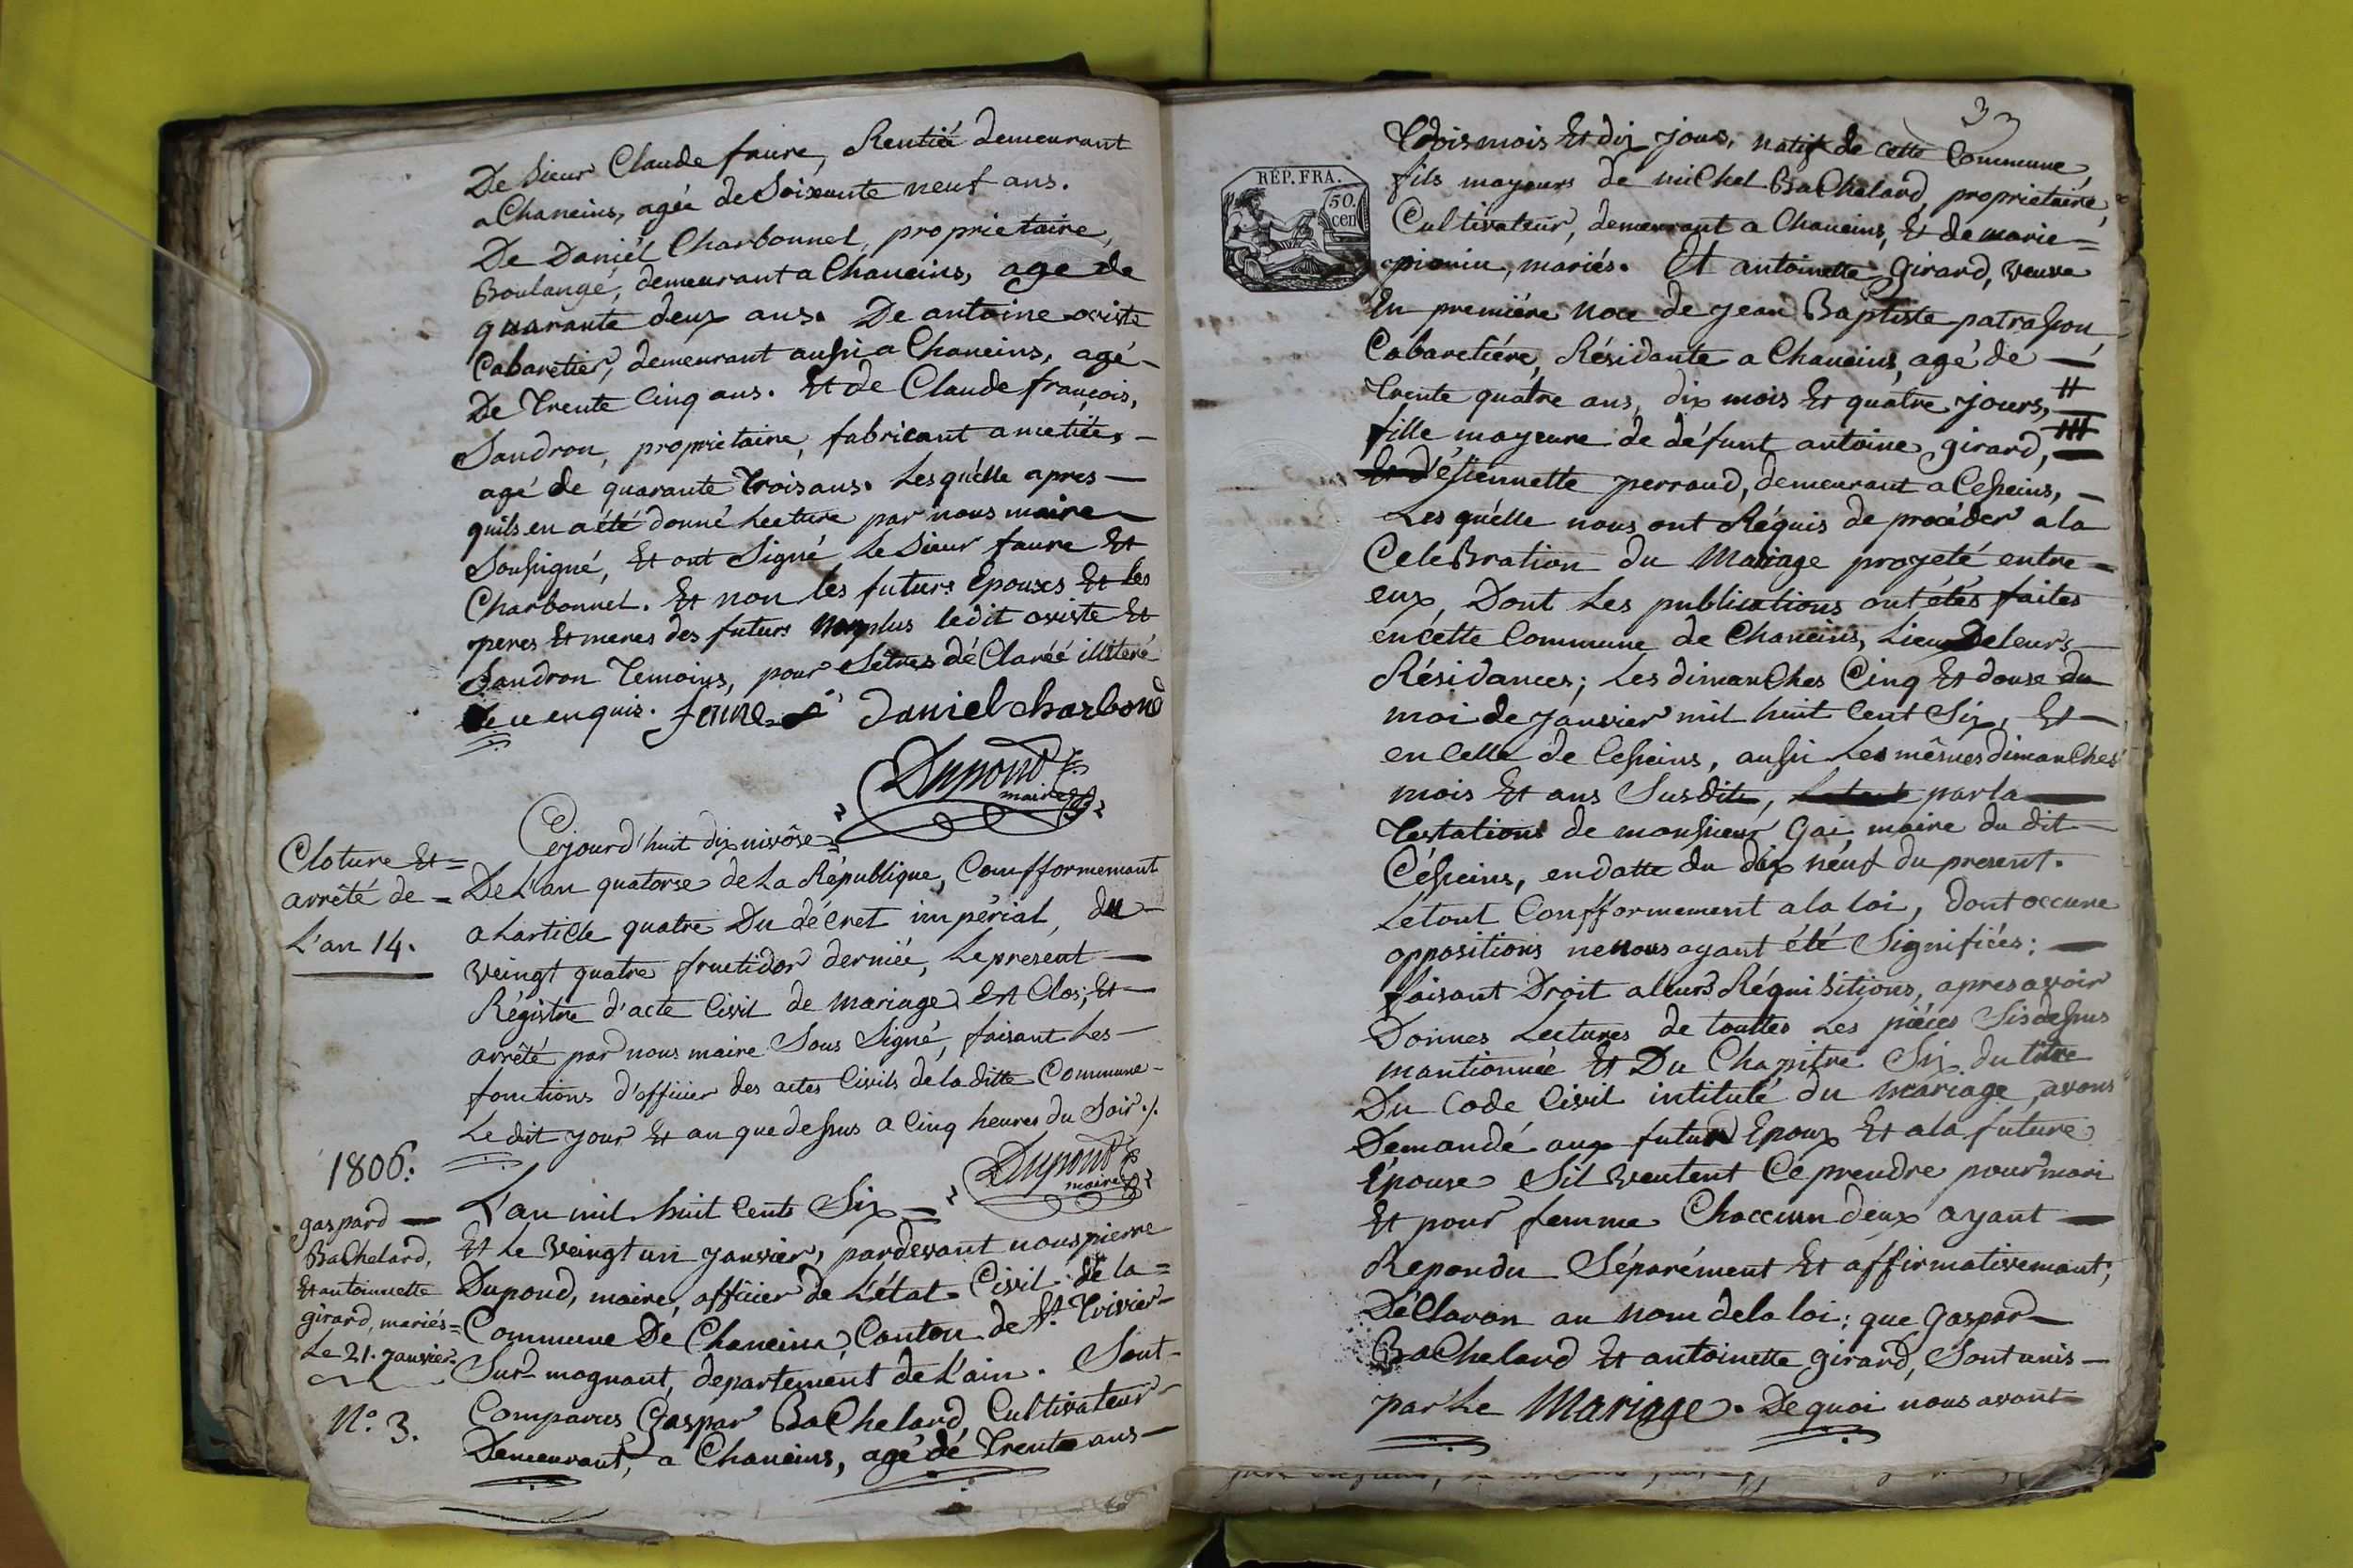 De Sieur Claude faure, Rentiée demeurant
a Chaneins, agée de Soixante neuf ans.
De Daniél Charbonnel, propriétaire,
Boulangé, demeurant a Chaneins, agé de
quarante deux ans. De antoine oviste
Cabaretier, demeurant aussi a Chaneins, agé -
De Trente Cinq ans. Et de Claude françois,
Sandron, propriétaire, fabricant a metiées -
agé de quarante Trois ans. Lesquélle apres -
quils en a été donné Lecture par nous maire -
Soussigné, Et ont Signé Le Sieur faure Et
Charbonnel. Et non les futurs Epouxs Et les
peres Et meres des futurs non plus ledit oviste Et
Sandron Temoins, pour Sètres déClaréé illiteré
de ce enquis. faure daniel charbone
Dupond
maire
Cloture Et =
arrêté de =
L'an 14.
Cejourd'huit dix nivôse =
De L'an quatorse de La République, Confformemant
a LartiCle quatre Du déCret impérial, du -
Veingt quatre fructidor derniée, Le present -
Régistre d'acte Civil de Mariage Est Clos, Et -
arrêté par nous maire Sous Signé, faisant Les -
fonctions d'officier des actes Civils de la ditte Commune -
Le dit jour Et an que dessus a Cinq heures du Soir ./.
Dupond
maire
1806.
gaspard -
BaChelard,
Et antoinette
girard, mariés =
Le 21. janvier.
N.o 3.
L'an mil huit Cents Six =
Et Le Veingt un janvier, pardevant nous pierre
Dupond, maire, officier de L'état Civil de la =
Commune De Chaneins, Canton de St. Trivier -
Sur mognant, departement de L'ain. Sont -
Comparus Gaspar BaChelard, Cultivateur -
Demeurant, a Chaneins, agé dé Trente ans -
33
RÉP. FRA.
50.
cen
Trois mois Et dix jours, natif de cette Commune,
fils mayeurs de miChel BaChelard, propriétairé,
Cultivateur, demeurant a Chaneins, Et de marie =
pionin, mariés. Et antoinette Girard, veuve
En premiére Noce de jean Baptiste patrasson,
Cabaretiére, Résidante a Chaneins, agé de -
Trente quatre ans, dix mois Et quatre jours,
fille mayeure de défunt antoine girard,
Et d'éstiennette perraud, demeurant a Cesseins, -
Les quélle nous ont Réquis de procéder a la
CeleBration du Mariage projeté entre =
eux, Dont Les publications ont étés faites
en cette Commune de Chaneins, Lieux De leurs -
Résidances; Les dimanChes Cinq Et douse du
moi de janvier mil huit Cent Six, Et -
en Celle de Cesseins, aussi Les mêmes dimanChes
mois Et ans Susdits, par la -
Testations de monssieur Gai, maire du dit -
Césseins, en datte du dix néuf du present.
Le tout Confformement a la loi, dont occune
oppositions ne nous ayant été Signifiées: -
faisant Droit a leurs Réquisitions, apres avoir
Donnes Lectures de touttes Les piéces Sis dessus
mantionnée Et Du Chapitre Six du titre
Du Code Civil intitulé du mariage, avons
Demandé aux futur Epoux Et a la future
Epouse Sil veulent Ce prendre pour mari
Et pour femme Chaccun d'eux ayant -
Repondu Séparément Et affirmativemant;
DéClaron au Nom de la loi: que Gaspar -
BaChelard Et antoinette girard, Sont unis -
par Le Mariage. De quoi nous avont =